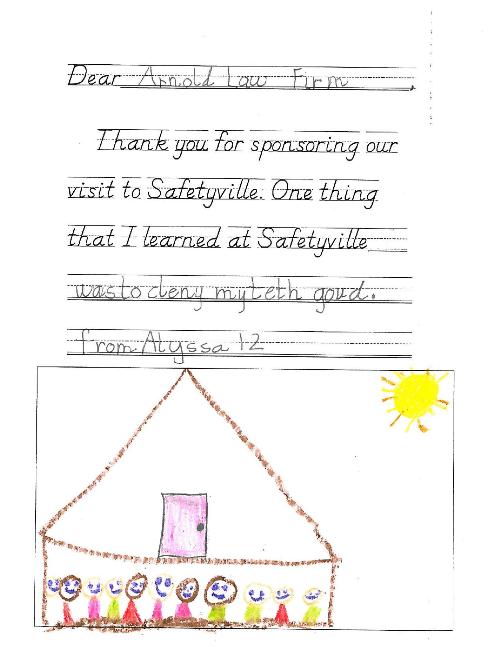 Dear Arnold Law Firm,
Thank you for sponsoring our
visit to Safetyville. One thing
that I learned at Safetyville
wasto cleny myteth goud.
from Alyssa 12